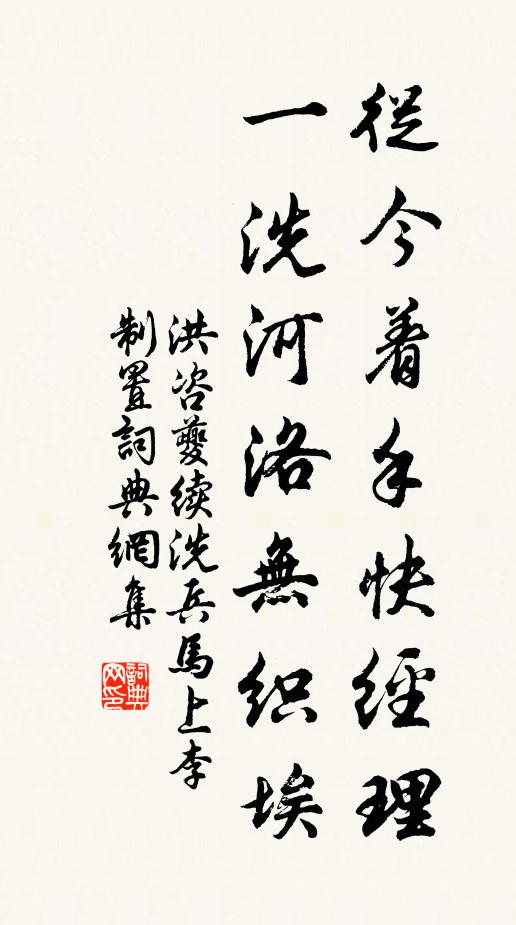 從今着手快經理
一洗河洛無织埃
洪咨夔续洗兵馬上李
制置詞典網集
詞典网印